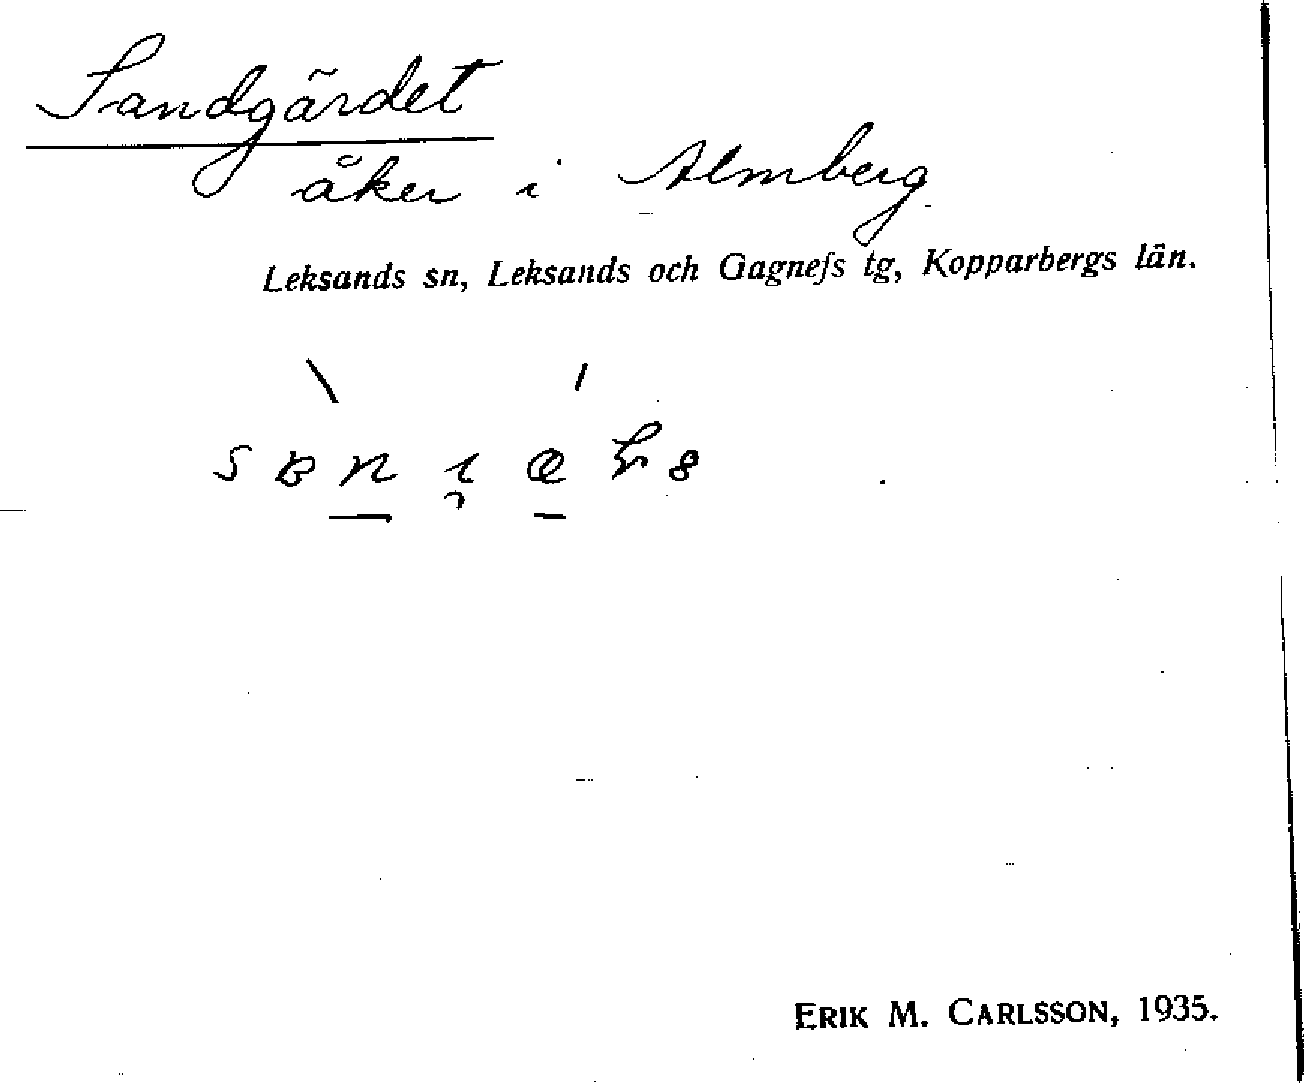 Sandgärdet
åker i Almberg
Leksands sn, Leksands och Gagnefs tg, Kopparbergs län.
ERIK M. CARLSSON, 1935.